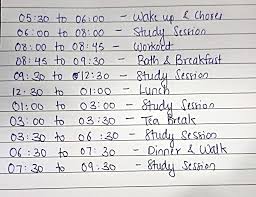 05:30 to 06:00 - Wake up & Chores
06:00 to 08:00 - Study Session
08:00 to 08:45 - Workout
08:45 to 09:30 - Bath & Breakfast
09:30 to 12:30 - Study Session
12:30 to 01:00 - Lunch
01:00 to 03:00 - Study Session
03:00 to 03:30 - Tea Break
03:30 to 06:30 - Study Session
06:30 to 07:30 - Dinner & Walk
07:30 to 09:30 - Study Session